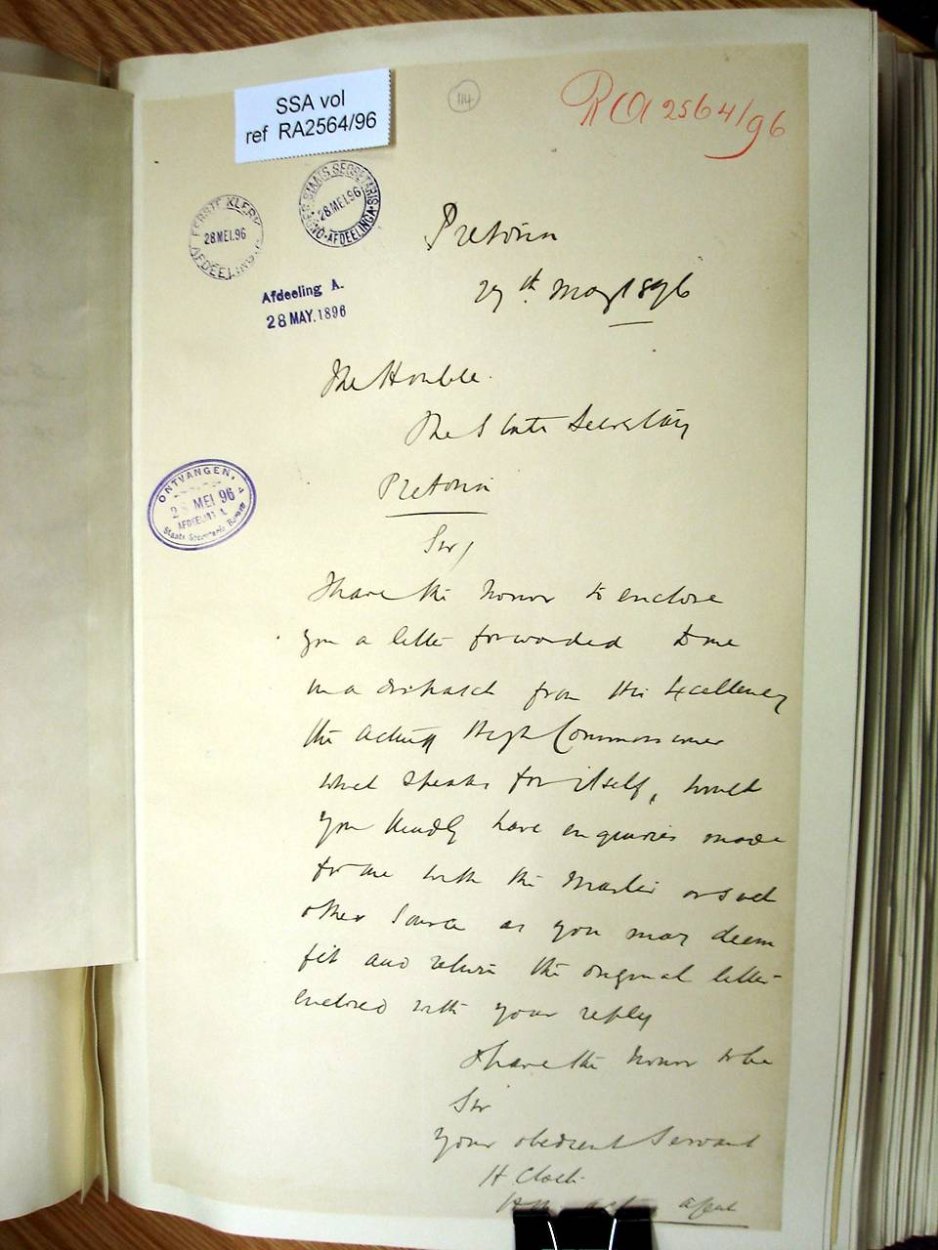 SSA vol
ref RA2564/96
114
RA 2564/96
EERSTE KLERK
28 MEI.96
AFDEELING
STAATS SECRETARIS
28 MEI.96
AFDEELING A
Afdeeling A.
28 MAY.1896
Pretoria
27th May 1896
The Honble.
The State Secretary
Pretoria
ONTVANGEN,
28 MEI 96
AFDEELING A
Staats Secretaris
Sir,
I have the honor to enclose
you a letter forwarded to me
in a dispatch from His Excellency
the Acting High Commissioner
which speaks for itself, would
you kindly have enquiries made
for me with the Master or such
other source as you may deem
fit and return the original letter
enclosed with your reply
I have the honor to be
Sir
your obedient Servant
H Cloete
HM actg agent